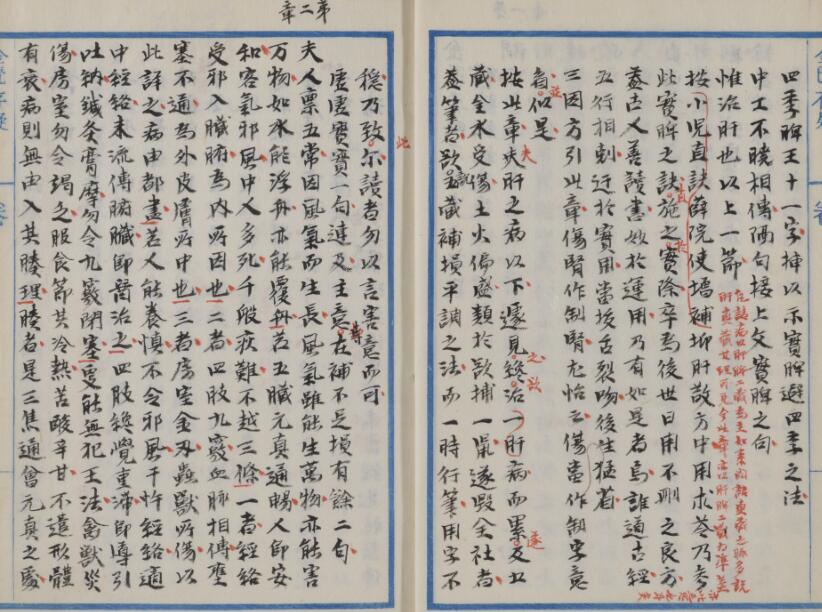 四季脾王十一字挿以示實脾避四季之法
中工不曉相傳隔句接上文實脾之句
惟治肝也以上一節
按小児直訣薛院使塙補抑肝散方中用朮苓乃考
此實脾之訣施之實際卒為後世日用不刪之良方
蓋古人善讀書妙於運用乃有如是者烏誰道古経
五行相剋迂於實用當拔舌裂吻後生猛省
三因方引此章傷腎作制腎尤怡云傷當作制字意
似是
按此章夫肝之病以下遽見治一肝病而累及五
蔵金水受傷土火偏盛類於欲捕一鼠遂毀全社者
蓋筆者欲蔵補損平調之法而一時行筆用字不
穏乃致尓讀者勿以言害意而可
虚虚實實一句連及主意在補不足損有餘二句
第二章
夫人禀五常因風氣而生長風氣雖能生萬物亦能害
万物如水能浮舟亦能覆舟若五臓元真通暢人即安
和客氣邪風中人多死千般疢難不越三條一者経絡
受邪入臓腑為内所因也二者四肢九竅血脉相傳壅
塞不通為外皮膚所中也三者房室金刃蟲獣所傷以
此詳之病由都盡若人能養慎不令邪風干忤経絡適
中経絡未流傳腑臓即醫治之四肢纔覺重滞即導引
吐納鍼灸膏摩勿令九竅閉塞更能無犯王法禽獣災
傷房室勿令竭之服食節其冷熱苦酸辛甘不遺形體
有衰病則無由入其腠理腠者是三焦通會元真之處